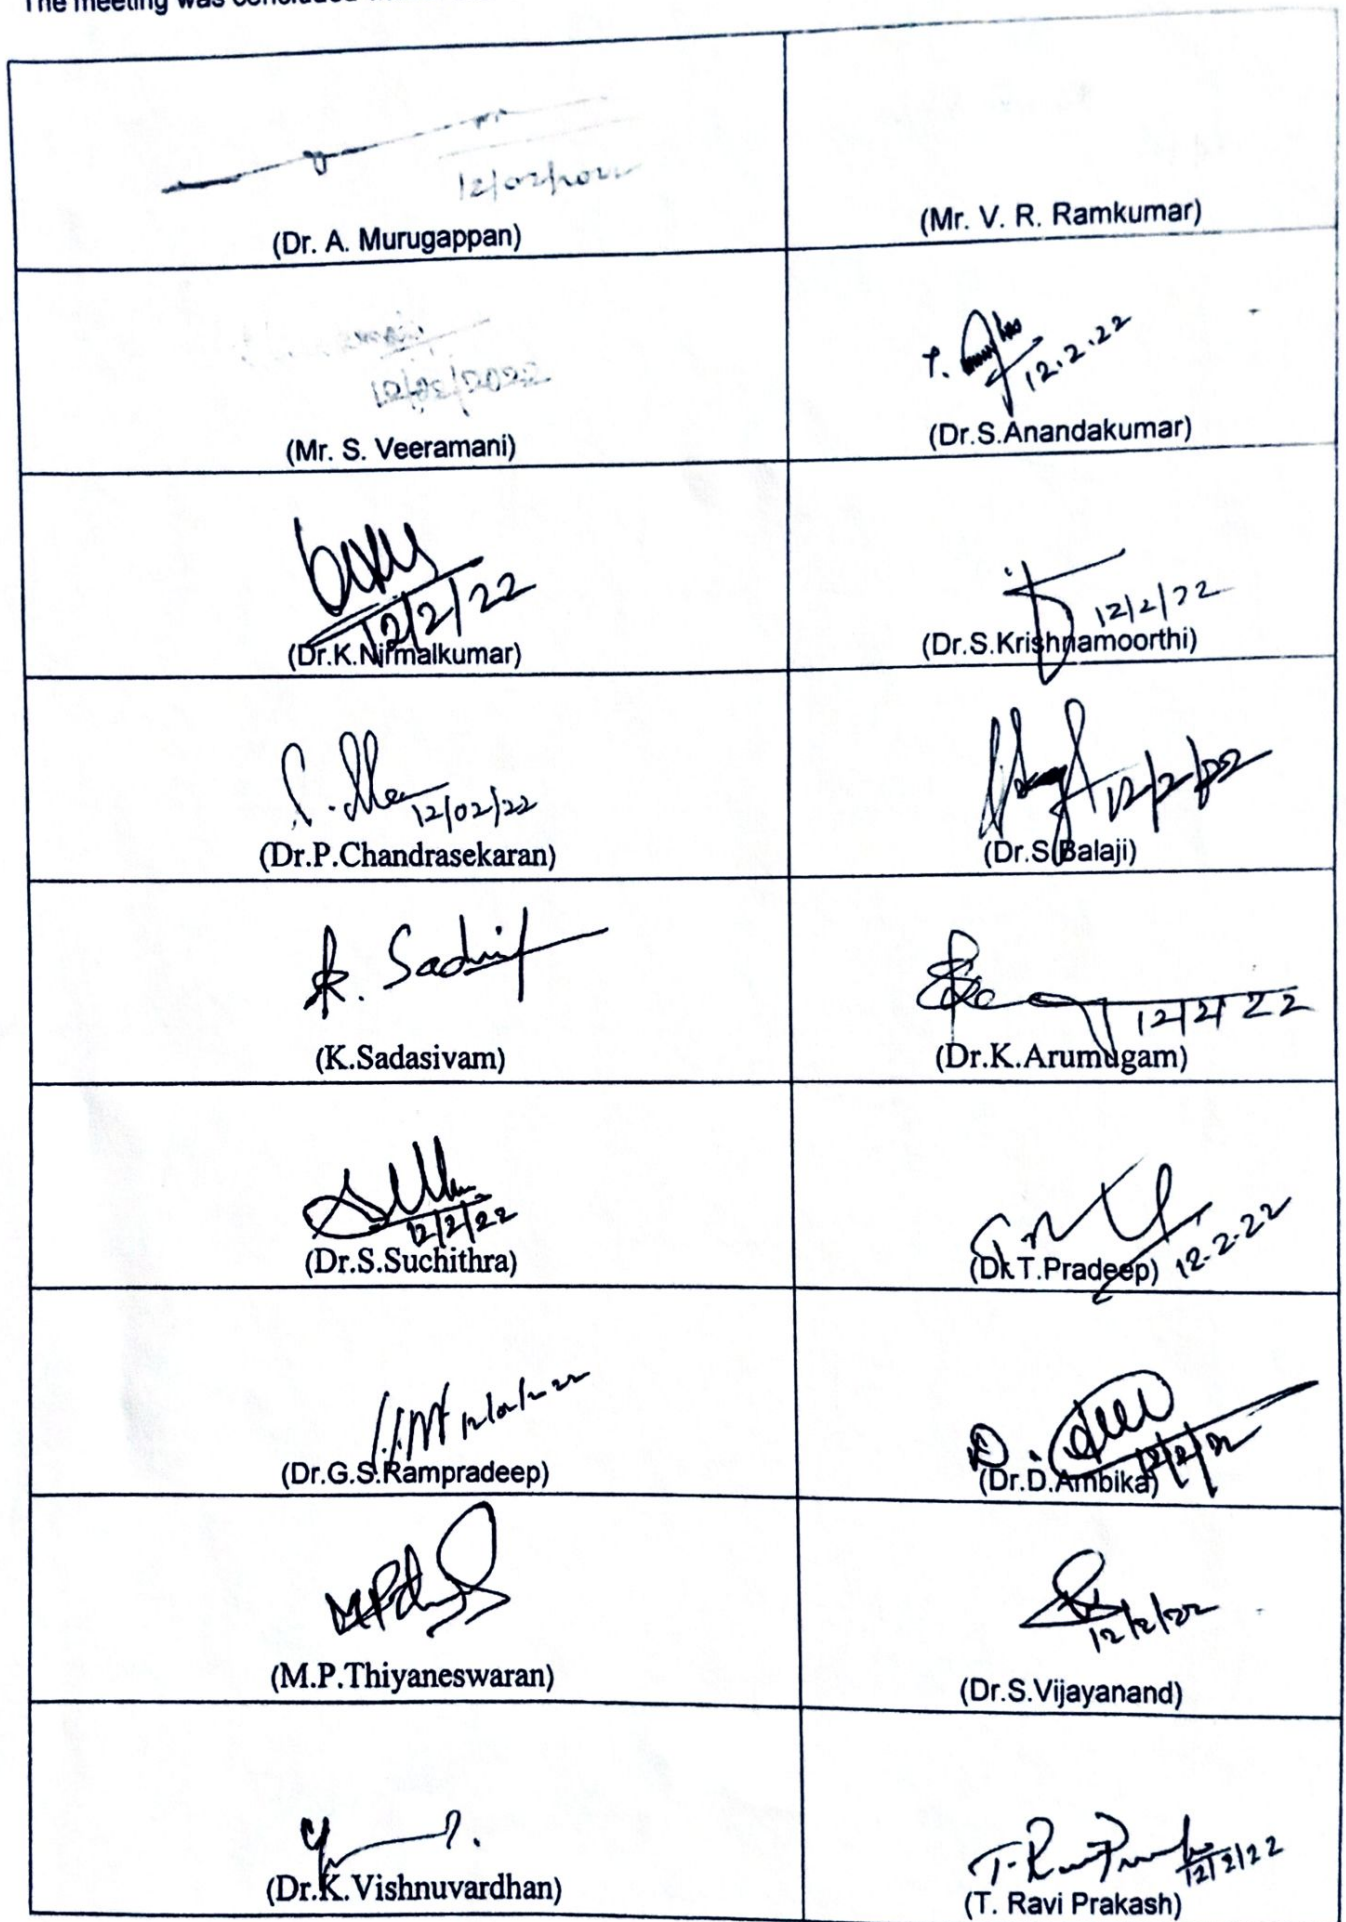 The meeting was concluded
12/02/2022
(Dr. A. Murugappan)
(Mr. V. R. Ramkumar)
12/02/2022
(Mr. S. Veeramani)
12.2.22
(Dr.S.Anandakumar)
12/2/22
(Dr.K.Nirmalkumar)
12/2/22
(Dr.S.Krishnamoorthi)
12/02/22
(Dr.P.Chandrasekaran)
12/2/22
(Dr.S.Balaji)
(K.Sadasivam)
12/2/22
(Dr.K.Arumugam)
12/2/22
(Dr.S.Suchithra)
12.2.22
(Dr.T.Pradeep)
(Dr.G.S.Rampradeep)
12/2/22
(Dr.D.Ambika)
(M.P.Thiyaneswaran)
12/2/22
(Dr.S.Vijayanand)
(Dr.K.Vishnuvardhan)
12/2/22
(T. Ravi Prakash)